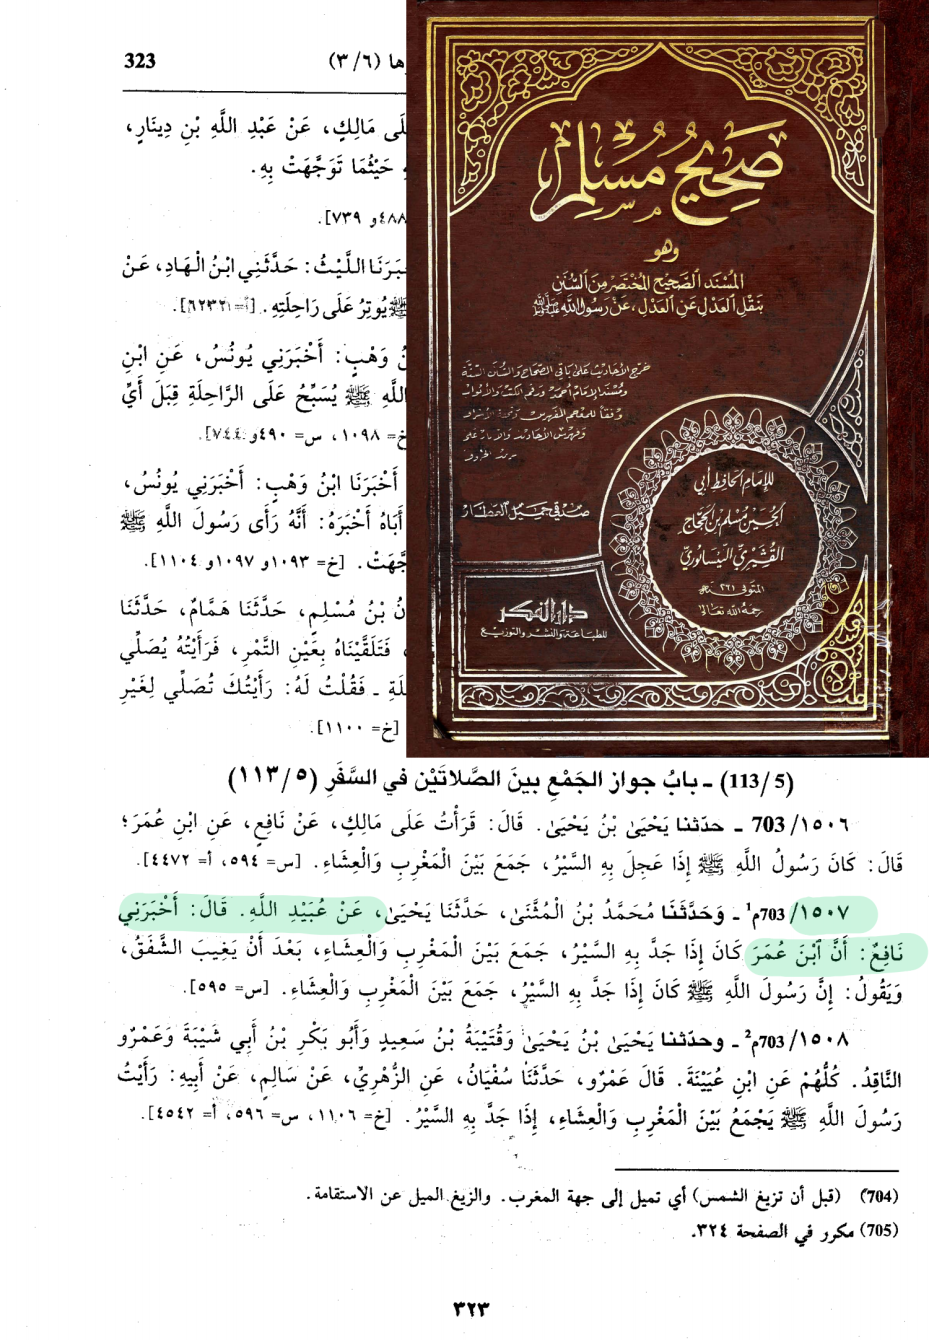 323
ـرها (٣/٦)
ـلَى مَالِكٍ، عَنْ عَبْدِ اللَّهِ بْنِ دِينَارٍ،
حَيْثُمَا تَوَجَّهَتْ بِهِ.
٤٨٨و ٧٣٩].
ـبَرَنَا اللَّيْثُ: حَدَّثَنِي ابْنُ الْهَادِ، عَنْ
ﷺ يُوتِرُ عَلَى رَاحِلَتِهِ. [أ= ٦٢٣٢].
وَهْبٍ: أَخْبَرَنِي يُونُسُ، عَنِ ابْنِ
اللَّهِ ﷺ يُسَبِّحُ عَلَى الرَّاحِلَةِ قِبَلَ أَيِّ
خ= ١٠٩٨، س= ٤٩٠و ٧٤٤].
أَخْبَرَنَا ابْنُ وَهْبٍ: أَخْبَرَنِي يُونُسُ،
أَبَاهُ أَخْبَرَهُ: أَنَّهُ رَأَى رَسُولَ اللَّهِ ﷺ
ـجَّهَتْ. [خ= ١٠٩٣و ١٠٩٧و ١١٠٤].
بْنُ مُسْلِمٍ، حَدَّثَنَا هَمَّامٌ، حَدَّثَنَا
فَتَلَقَّيْنَاهُ بِعَيْنِ التَّمْرِ، فَرَأَيْتُهُ يُصَلِّي
ـلَةِ ـ فَقُلْتُ لَهُ: رَأَيْتُكَ تُصَلِّي لِغَيْرِ
[خ= ١١٠٠].
صَحِيحُ مُسْلِم
وهو
المُسْنَد الصَّحِيح المُخْتَصَر مِنَ السُّنَنِ
بنَقْلِ العَدْلِ عَنِ العَدْلِ، عَنْ رَسُولِ اللَّهِ ﷺ
خرج الأحاديث على باقي الصحاح والسنن الستة
ومسند الإمام أحمد ورقم الكتب والأبواب
وفقاً للمعجم المفهرس وتحفة الأشراف
وفهرس الأحاديث والآثار على
صدقي جميل العطار
للإمام الحافظ أبي
الحسين مسلم بن الحجاج
القشيري النيسابوري
المتوفى ٢٦١ هـ
رحمه الله تعالى
دار الفكر
للطباعة والنشر والتوزيع
(113/5) ـ بابُ جواز الجَمْعِ بينَ الصَّلاتَيْن في السَّفَرِ (١١٣/٥)
703/١٥٠٦ ـ حدّثنا يَحْيَىٰ بْنُ يَحْيَىٰ. قَالَ: قَرَأْتُ عَلَى مَالِكٍ، عَنْ نَافِعٍ، عَنِ ابْنِ عُمَرَ؛
قَالَ: كَانَ رَسُولُ اللَّهِ ﷺ إِذَا عَجِلَ بِهِ السَّيْرُ، جَمَعَ بَيْنَ الْمَغْرِبِ وَالْعِشَاءِ. [س= ٥٩٤، أ= ٤٤٧٢].
703/١٥٠٧م¹ ـ وَحَدَّثَنَا مُحَمَّدُ بْنُ الْمُثَنَّىٰ، حَدَّثَنَا يَحْيَىٰ، عَنْ عُبَيْدِ اللَّهِ. قَالَ: أَخْبَرَنِي
نَافِعٌ: أَنَّ ٱبْنَ عُمَرَ كَانَ إِذَا جَدَّ بِهِ السَّيْرُ، جَمَعَ بَيْنَ الْمَغْرِبِ وَالْعِشَاءِ، بَعْدَ أَنْ يَغِيبَ الشَّفَقُ،
وَيَقُولُ: إِنَّ رَسُولَ اللَّهِ ﷺ كَانَ إِذَا جَدَّ بِهِ السَّيْرُ، جَمَعَ بَيْنَ الْمَغْرِبِ وَالْعِشَاءِ. [س= ٥٩٥].
703/١٥٠٨م² ـ وحدّثنا يَحْيَىٰ بْنُ يَحْيَىٰ وَقُتَيْبَةُ بْنُ سَعِيدٍ وَأَبُو بَكْرِ بْنُ أَبِي شَيْبَةَ وَعَمْرٌو
النَّاقِدُ. كُلُّهُمْ عَنِ ابْنِ عُيَيْنَةَ. قَالَ عَمْرٌو، حَدَّثَنَا سُفْيَانُ، عَنِ الزُّهْرِيِّ، عَنْ سَالِمٍ، عَنْ أَبِيهِ: رَأَيْتُ
رَسُولَ اللَّهِ ﷺ يَجْمَعُ بَيْنَ الْمَغْرِبِ وَالْعِشَاءِ، إِذَا جَدَّ بِهِ السَّيْرُ. [خ= ١١٠٦، س= ٥٩٦، أ= ٤٥٤٢].
(704) (قبل أن تزيغ الشمس) أي تميل إلى جهة المغرب. والزيغ الميل عن الاستقامة.
(705) مكرر في الصفحة ٣٢٤.
٣٢٣